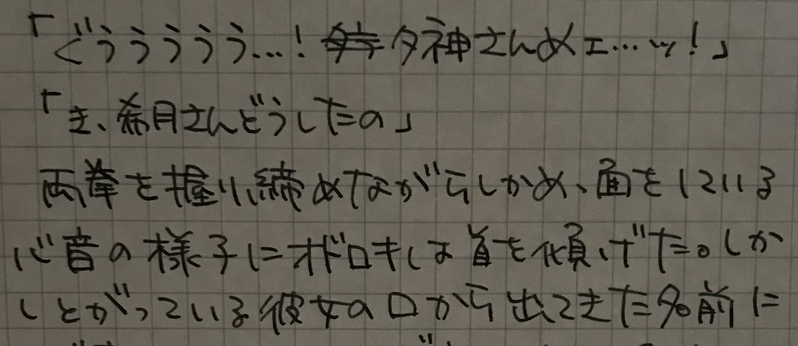 「ぐうううう…!夕神さんめェ…ッ!」
「き、希月さんどうしたの」
両拳を握り締めながらしかめ、面をしている
心音の様子にオドロキは首を傾げた。しか
しとがっている彼女の口から出てきた名前に